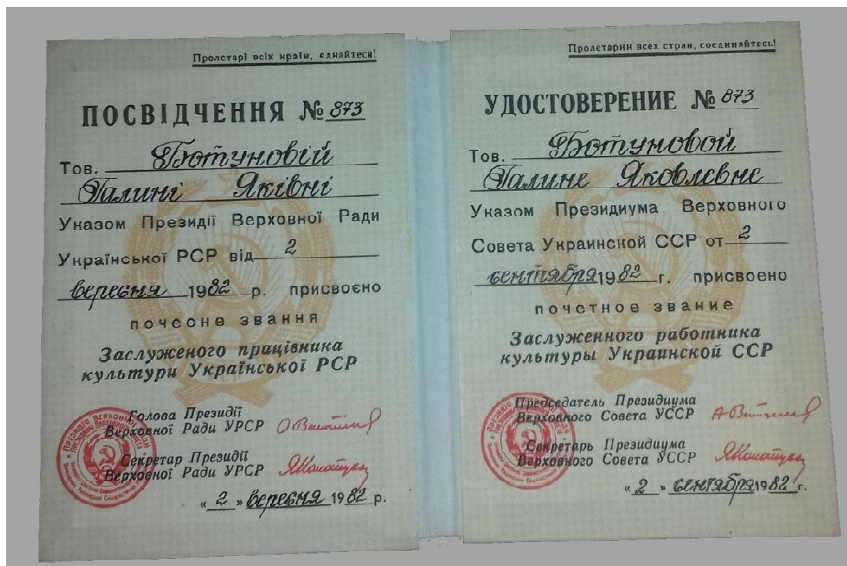 Пролетарі всіх країн, єднайтеся!
ПОСВІДЧЕННЯ № 873
Тов. Ботуновій
Галині Яківні
Указом Президії Верховної Ради
Української РСР від 2
вересня 1982 р. присвоєно
почесне звання
Заслуженого працівника
культури Української РСР
Голова Президії
Верховної Ради УРСР
Секретар Президії
Верховної Ради УРСР
« 2 » вересня 1982 р.
Пролетарии всех стран, соединяйтесь!
УДОСТОВЕРЕНИЕ № 873
Тов. Ботуновой
Галине Яковлевне
Указом Президиума Верховного
Совета Украинской ССР от 2
сентября 1982 г. присвоено
почетное звание
Заслуженного работника
культуры Украинской ССР
Председатель Президиума
Верховного Совета УССР
Секретарь Президиума
Верховного Совета УССР
« 2 » сентября 1982 г.